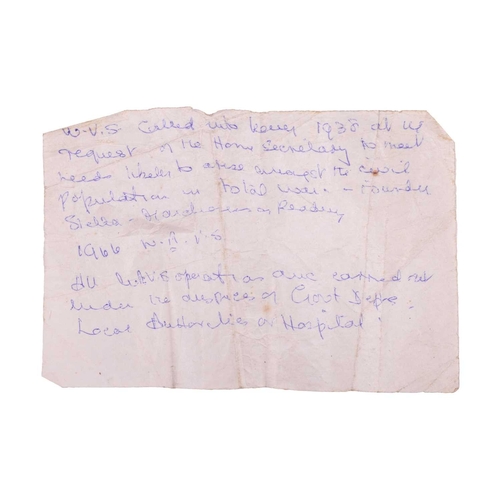 W.V.S. Called into being 1938 at the
request of the Home Secretary to meet
needs likely to arise amongst the civil
population in total war - Founder
Stella - Marchioness of Reading
1966 W.R.V.S.
All W.R.V.S operations are carried out
under the auspices of Govt Depts:
Local Authorities or Hospital